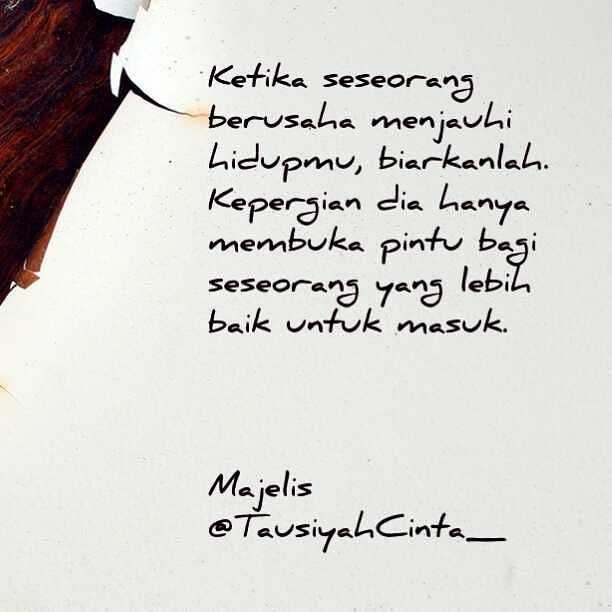 Ketika seseorang
berusaha menjauhi
hidupmu, biarkanlah.
Kepergian dia hanya
membuka pintu bagi
seseorang yang lebih
baik untuk masuk.
Majelis
@TausiyahCinta_